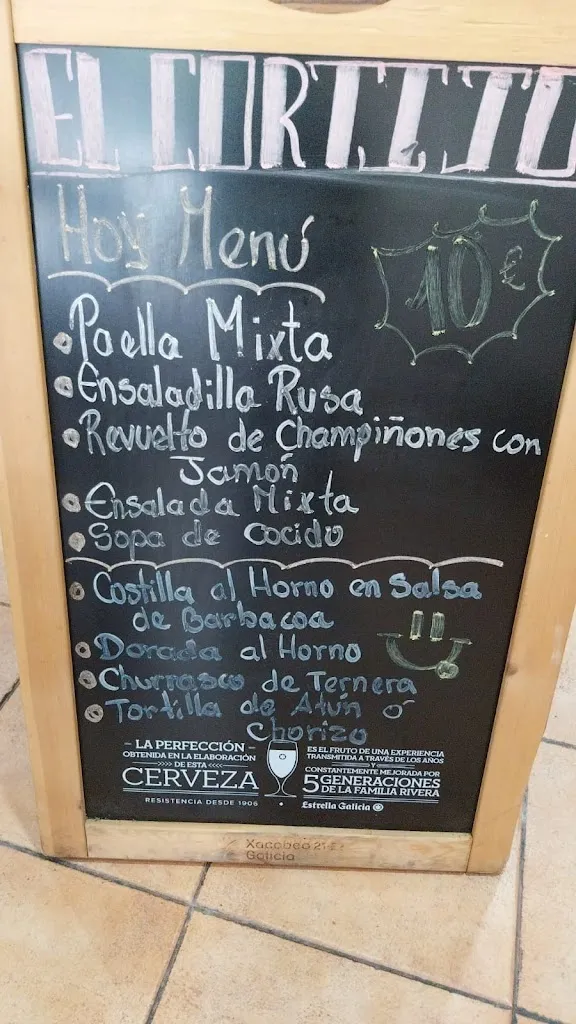 EL CORTIJO
Hoy Menú
10 €
Paella Mixta
Ensaladilla Rusa
Revuelto de Champiñones con
Jamón
Ensalada Mixta
Sopa de cocido
Costilla al Horno en Salsa
de Barbacoa
Dorada al Horno
Churrasco de Ternera
Tortilla de Atún ó
Chorizo
LA PERFECCIÓN
OBTENIDA EN LA ELABORACIÓN
DE ESTA
CERVEZA
RESISTENCIA DESDE 1906
ES EL FRUTO DE UNA EXPERIENCIA
TRANSMITIDA A TRAVÉS DE LOS AÑOS
Y
CONSTANTEMENTE MEJORADA POR
5 GENERACIONES
DE LA FAMILIA RIVERA
Estrella Galicia
Xacobeo 21·22
Galicia